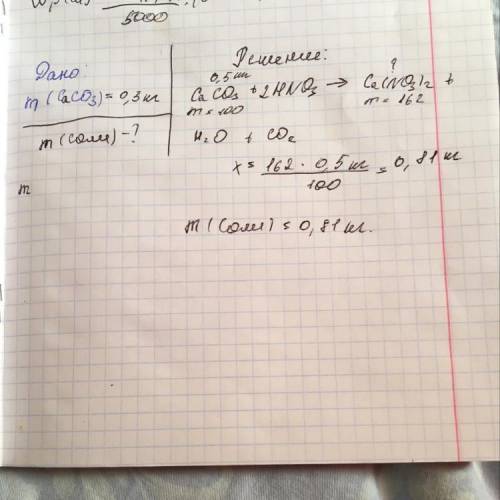 5000
Дано:
m (CaCO3) = 0,3 кг
m (соли) - ?
m
Решение:
0,5 кг ?
CaCO3 + 2HNO3 → Ca(NO3)2 +
m = 100 m = 162
H2O + CO2
x = 162 · 0,5 кг = 0,81 кг
100
m (соли) = 0,81 кг.